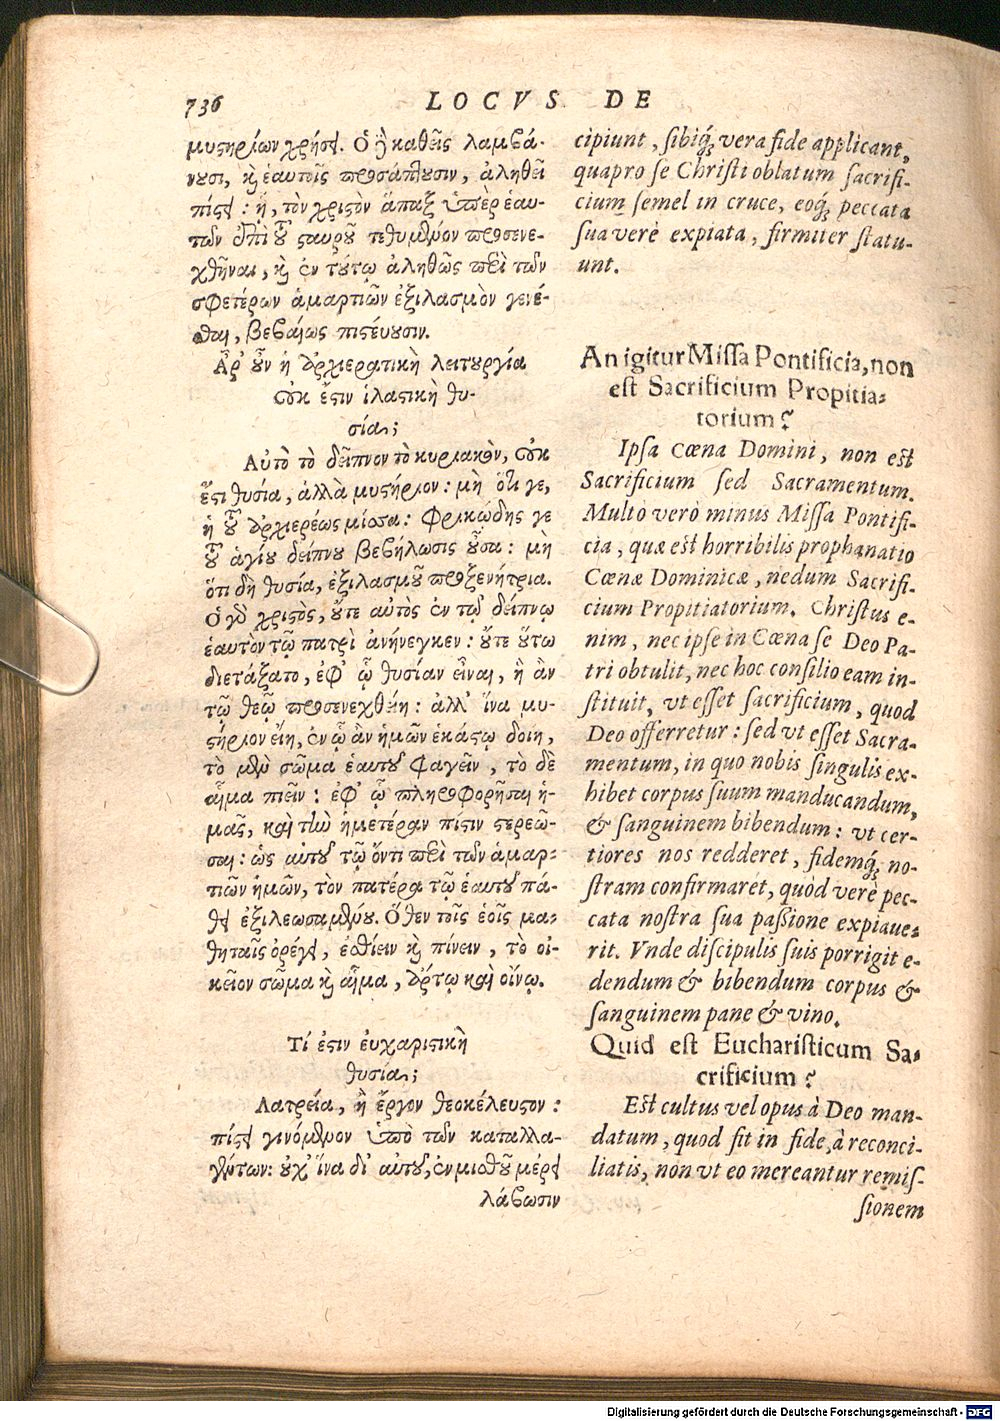 736 LOCVS DE
μυστηρίων χρήσει. Ὁ δὲ καθεῖς λαμβά-
νουσι, καὶ ἑαυτοῖς προσάπτουσιν, ἀληθεῖ
πίστει: ᾗ, τὸν χριστὸν ἅπαξ ὑπὲρ ἑαυ-
τῶν ἐπὶ τοῦ σταυροῦ τεθυμένον προσενε-
χθῆναι, καὶ ἐν τούτῳ ἀληθῶς περὶ τῶν
σφετέρων ἁμαρτιῶν ἐξιλασμὸν γενέ-
σθαι, βεβαίως πιστεύουσιν.
Ἆρ' οὖν ἡ ἀρχιερατικὴ λειτουργία
οὐκ ἔστιν ἱλαστικὴ θυ-
σία;
Αὐτὸ τὸ δεῖπνον τὸ κυριακὸν, οὐκ
ἔστι θυσία, ἀλλὰ μυστήριον: μὴ ὅτι γε,
ἡ τοῦ ἀρχιερέως μίσσα: φρικώδης γε
τοῦ ἁγίου δείπνου βεβήλωσις οὖσα: μὴ
ὅτι δὴ θυσία, ἐξιλασμοῦ προξενήτρια.
Ὁ γὰρ χριστὸς, οὔτε αὐτὸς ἐν τῷ δείπνῳ
ἑαυτὸν τῷ πατρὶ ἀνήνεγκεν: οὔτε οὕτω
διετάξατο, ἐφ' ᾧ θυσίαν εἶναι, ἣ ἂν
τῷ θεῷ προσενεχθείη: ἀλλ' ἵνα μυ-
στήριον εἴη, ἐν ᾧ ἂν ἡμῶν ἑκάστῳ δοίη,
τὸ μὲν σῶμα ἑαυτοῦ φαγεῖν, τὸ δὲ
αἷμα πιεῖν: ἐφ' ᾧ πληροφορῆσαι ἡ-
μᾶς, καὶ τὴν ἡμετέραν πίστιν στερεῶ-
σαι: ὡς αὐτοῦ τῷ ὄντι περὶ τῶν ἁμαρ-
τιῶν ἡμῶν, τὸν πατέρα τῷ ἑαυτοῦ πά-
θει ἐξιλεωσαμένου. Ὅθεν τοῖς ἑοῖς μα-
θηταῖς ὀρέγει, ἐσθίειν καὶ πίνειν, τὸ οἰ-
κεῖον σῶμα καὶ αἷμα, ἄρτῳ καὶ οἴνῳ.
Τί ἐστιν εὐχαριστικὴ
θυσία;
Λατρεία, ἢ ἔργον θεοκέλευστον:
πίστει γινόμενον ὑπὸ τῶν καταλλα-
γέντων: οὐχ' ἵνα δι' αὐτοῦ, ἐν μισθοῦ μέρει
λάβωσιν
cipiunt, sibiq́; vera fide applicant,
quapro se Christi oblatum sacrifi-
cium semel in cruce, eoq́; peccata
sua verè expiata, firmiter statu-
unt.
An igitur Missa Pontificia, non
est Sacrificium Propitia-
torium?
Ipsa Cœna Domini, non est
Sacrificium sed Sacramentum.
Multò verò minus Missa Pontifi-
cia, quæ est horribilis prophanatio
Cœnæ Dominicæ, nedum Sacrifi-
cium Propitiatorium. Christus e-
nim, nec ipse in Cœna se Deo Pa-
tri obtulit, nec hoc consilio eam in-
stituit, vt esset sacrificium, quod
Deo offerretur: sed vt esset Sacra-
mentum, in quo nobis singulis ex-
hibet corpus suum manducandum,
& sanguinem bibendum: vt cer-
tiores nos redderet, fidemq́; no-
stram confirmaret, quòd verè pec-
cata nostra sua passione expiaue-
rit. Vnde discipulis suis porrigit e-
dendum & bibendum corpus &
sanguinem pane & vino.
Quid est Eucharisticum Sa-
crificium?
Est cultus vel opus à Deo man-
datum, quod fit in fide, à reconci-
liatis, non vt eo mereantur remis-
sionem
Digitalisierung gefördert durch die Deutsche Forschungsgemeinschaft - DFG